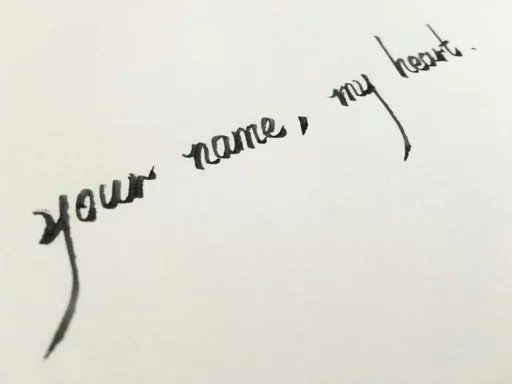 your name, my heart.